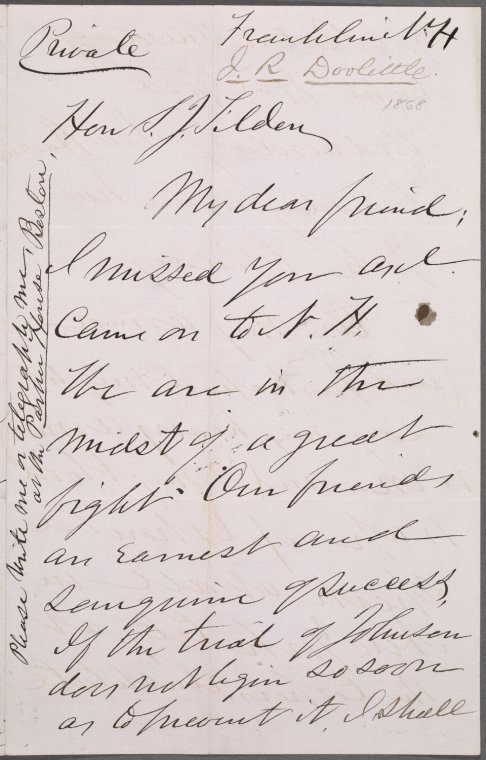 Private
Franklin N. H
J. R Doolittle.
1868
Hon S. J. Tilden
My dear friend;
I missed you and
Came on to N. H.
We are in the
midst of a great
fight. Our friends
are Earnest and
sanguine of success,
If the trial of Johnson
does not begin so soon
as to prevent it, I shall
Please write me or telegraph me,
at the Parker House, Boston,